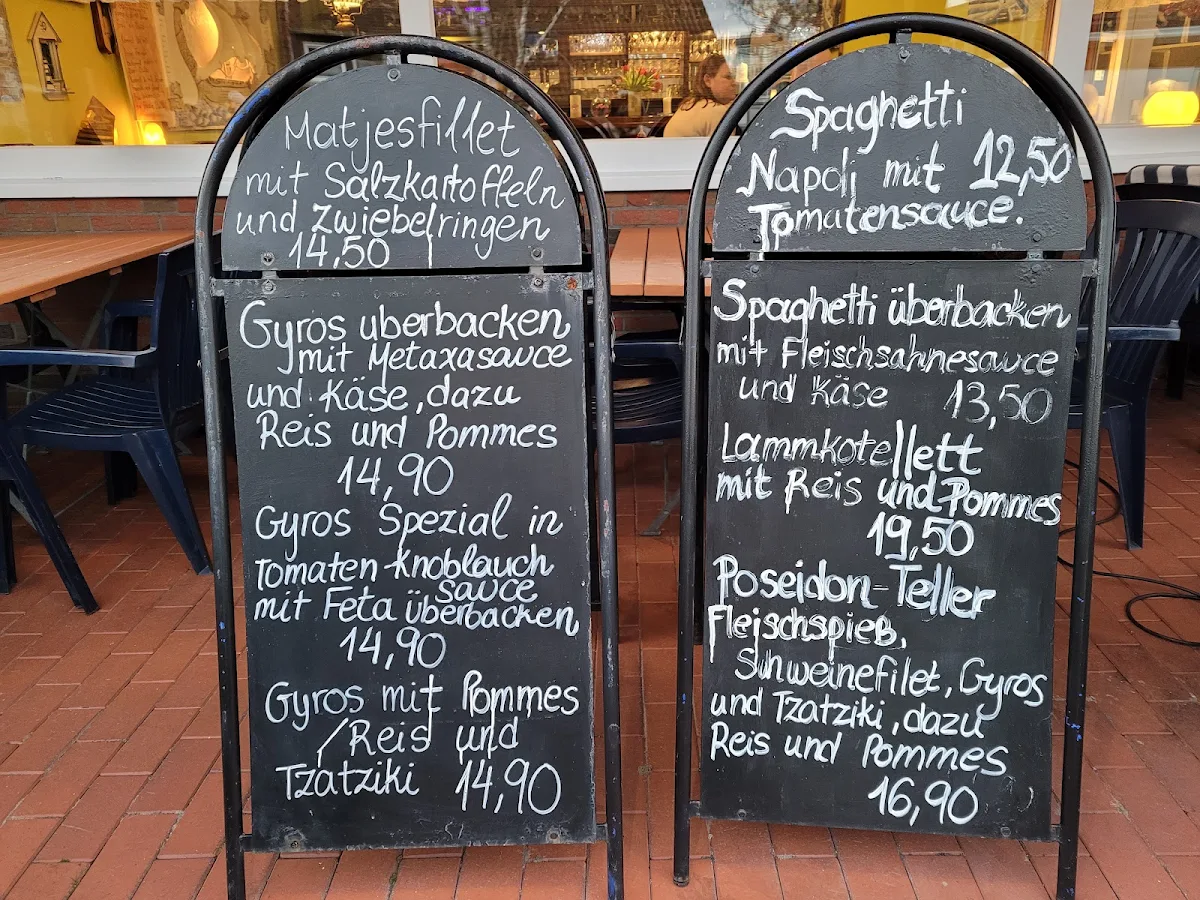 Matjesfillet
mit Salzkartoffeln
und Zwiebelringen
14,50
Gyros uberbacken
mit Metaxasauce
und Käse, dazu
Reis und Pommes
14,90
Gyros Spezial in
Tomaten-Knoblauch
sauce
mit Feta überbacken
14,90
Gyros mit Pommes
/Reis und
Tzatziki 14,90
Spaghetti
Napoli mit 12,50
Tomatensauce.
Spaghetti überbacken
mit Fleischsahnesauce
und Käse 13,50
Lammkotellett
mit Reis und Pommes
19,50
Poseidon-Teller
Fleischspieß,
Schweinefilet, Gyros
und Tzatziki, dazu
Reis und Pommes
16,90